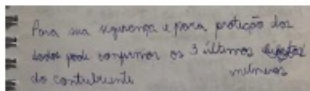 Para sua segurança e para proteção dos
dados pode confirmar os 3 últimos
do contribuinte números